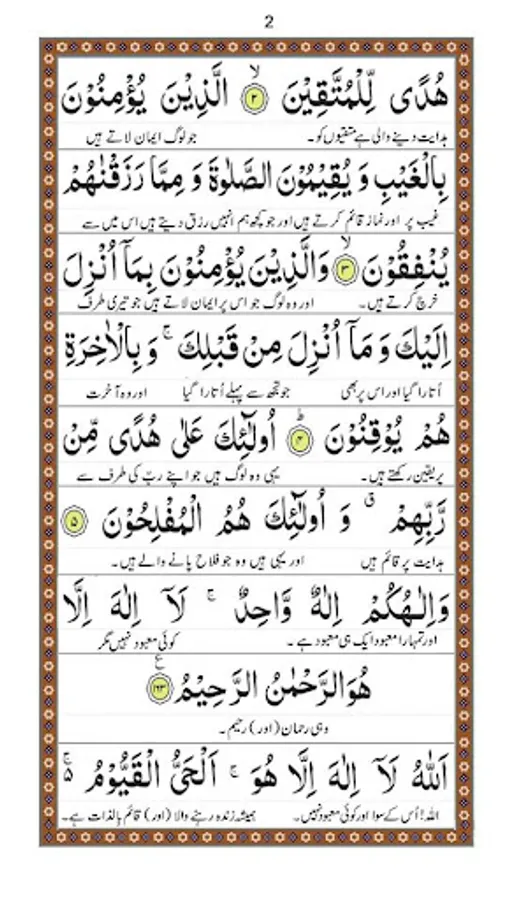 2
هُدًى لِّلْمُتَّقِيْنَ ۙ﴿۲﴾ الَّذِيْنَ يُؤْمِنُوْنَ
ہدایت دینے والی ہے متقیوں کو۔ جو لوگ ایمان لاتے ہیں
بِالْغَيْبِ وَ يُقِيْمُوْنَ الصَّلٰوةَ وَ مِمَّا رَزَقْنٰهُمْ
غیب پر اور نماز قائم کرتے ہیں اور جو کچھ ہم انہیں رزق دیتے ہیں اس میں سے
يُنْفِقُوْنَ ۙ﴿۳﴾ وَالَّذِيْنَ يُؤْمِنُوْنَ بِمَاۤ اُنْزِلَ
خرچ کرتے ہیں۔ اور وہ لوگ جو اس پر ایمان لاتے ہیں جو تیری طرف
اِلَيْكَ وَ مَاۤ اُنْزِلَ مِنْ قَبْلِكَ ۚ وَ بِالْاٰخِرَةِ
اُتارا گیا اور اس پر بھی جو تجھ سے پہلے اُتارا گیا اور وہ آخرت
هُمْ يُوْقِنُوْنَ ؕ﴿۴﴾ اُولٰٓئِكَ عَلٰى هُدًى مِّنْ
پر یقین رکھتے ہیں۔ یہی وہ لوگ ہیں جو اپنے ربّ کی طرف سے
رَّبِّهِمْ ۗ وَ اُولٰٓئِكَ هُمُ الْمُفْلِحُوْنَ ﴿۵﴾
ہدایت پر قائم ہیں اور یہی ہیں وہ جو فلاح پانے والے ہیں۔
وَاِلٰـهُكُمْ اِلٰهٌ وَّاحِدٌ ۚ لَاۤ اِلٰهَ اِلَّا
اور تمہارا معبود ایک ہی معبود ہے۔ کوئی معبود نہیں مگر
هُوَ الرَّحْمٰنُ الرَّحِيْمُ ﴿۱۶۳﴾ ع
وہی رحمان (اور) رحیم۔
اَللّٰهُ لَاۤ اِلٰهَ اِلَّا هُوَ ۚ اَلْحَىُّ الْقَيُّوْمُ ۵ ۚ
اللہ! اُس کے سوا اور کوئی معبود نہیں۔ ہمیشہ زندہ رہنے والا (اور) قائم بالذات ہے۔